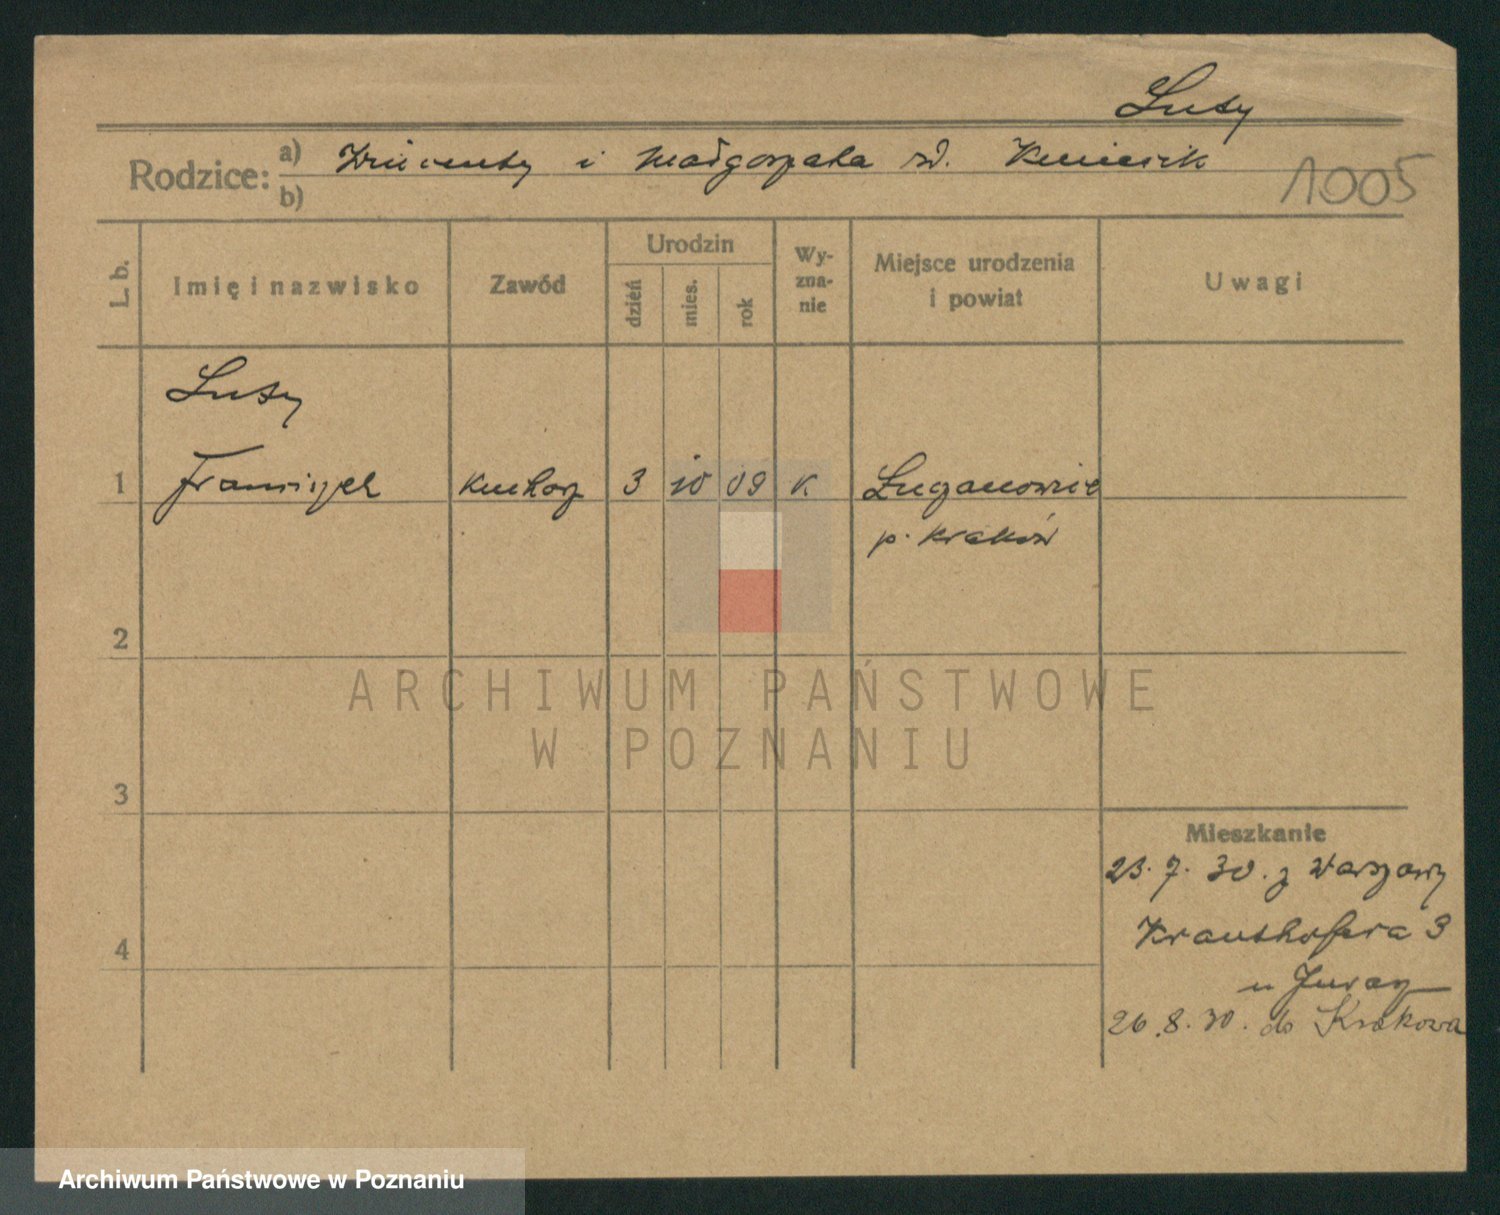 Luty
Rodzice: a) Wincenty i Małgorzata rd. Kmiecik
b)
1005
L. b.
Imię i nazwisko
Zawód
Urodzin
dzień
mies.
rok
Wy-
zna-
nie
Miejsce urodzenia
i powiat
Uwagi
Luty
1 Franciszek kucharz 3 10 09 k. Luganowice
p. Kraków
2
ARCHIWUM PAŃSTWOWE
W POZNANIU
3
Mieszkanie
23. 7. 30. z Warszawy
Krauthofera 3
4
u Juray
26. 8. 30. do Krakowa
Archiwum Państwowe w Poznaniu